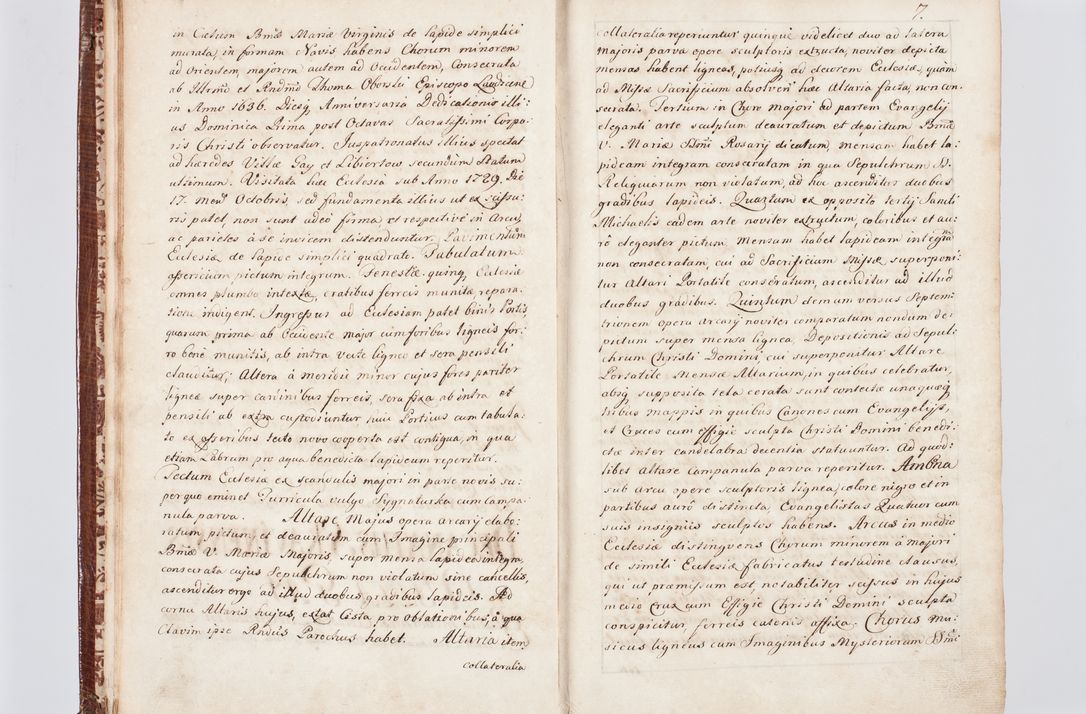 in Cœlum Bmæ Mariæ Virginis de lapide simplici
murata, in formam Navis habens Chorum minorem
ad Orientem, majorem autem ad Occidentem, Consecrata
ab Illrmo et Rndmo Thoma Oborski Episcopo Laodicene
in Anno 1636. Diesq Anniversaria Dedicationis illi-
us Dominica Prima post Octavas Sacratissimi Corpo-
ris Christi observatur. Juspatronatus illius spectat
ad hæredes Villæ Gay et Libiertow secundum Statum
ultimum. Visitata hæc Ecclesia sub Anno 1729. Die
17. mens Octobris, sed fundamenta illius ut ex scissu-
ris patet non sunt adeo firma et respective in Arcu,
ac parietes à se invicem distenduntur. Pavimentum
Ecclesiæ de lapide simplici quadrato. Tabulatum
asseritium pictum integrum. Fenestræ quinq Ecclesiæ
omnes plumbo intextæ, cratibus ferreis munitæ repara-
tione indigent. Ingressus ad Ecclesiam patet binis Portis,
quarum prima ab Occidente major cum foribus ligneis fer-
ro bene munitis, ab intra vecte ligneo et sera pensili
clauditur; Altera à meridie minor cujus fores pariter
ligneæ super cardinibus ferreis, sera fixa ab intra et
pensili ab extra custodiuntur, huic Porticus cum tabula-
to ex asseribus tecto novo cooperta est contigua, in qua
etiam Labrum pro aqua benedicta lapideum reperitur.
Tectum Ecclesiæ ex scandulis majori in parte novis su-
per quo eminet Turricula vulgo Sygnaturka cum Campa-
nula parva. Altare Majus opera arcarij elabo-
ratum, pictum, et deauratum cum Imagine principali
Bmæ V. Mariæ Majoris, super mensa lapidea integra,
consecrata cujus Sepulchrum non violatum sine cancellis,
ascenditur ergo ad illud duobus gradibus lapideis. Ad
cornu Altaris hujus, extat Cista pro Oblationibus, à qua
Clavim ipse Rndus Parochus habet. Altaria item
collateralia
7.
collateralia reperiuntur quinque videlicet duo ad latera
majoris parva opere sculptoris extructa, noviter depicta
mensas habent ligneas, potiusq ad decorem Ecclesiæ, quàm
ad Missæ Sacrificium absolven hæc Altaria facta, non con-
secrata. Tertium in Choro majori ad partem Evangelij
eleganti arte sculptum deauratum et depictum Bmæ
V. Mariæ Ssmi Rosarij dicatum, mensam habet la-
pideam integram consecratam in qua Sepulchrum S.
Reliquiarum non violatum, ad hoc ascenditur duobus
gradibus lapideis. Quartum ex opposito tertij Sancti
Michaelis eadem arte noviter extructum, coloribus et au-
rô eleganter pictum, Mensam habet lapideam integrã
non consecratam, cui ad Sacrificium Missæ superponi-
tur Altari Portatile consecratum, ascenditur ad illud
duobus gradibus. Quintum demum versus Septem-
trionem opera Arcarij noviter comparatum nondum de-
pictum super mensa lignea, Depositionis ad Sepul-
chrum Christi Domini, cui superponitur Altare
Portatile Mensæ Altarium, in quibus celebratur,
absq supposita tela cerata sunt contectæ una quæq
tribus mappis in quibus Canones cum Evangelijs,
et Cruces cum effigie sculpta Christi Domini benedi-
ctæ inter candelabra decentia statuuntur. Ad quod-
libet altare Campanula parva reperitur. Ambona
sub Arcu opere sculptoris lignea, colore nigro et in
partibus aurô distincta, Evangelistas Quatuor cum
suis insignijs sculptos habens. Arcus in medio
Ecclesiæ distingvens Chorum minorem à majori
de simili Ecclesiæ fabricatus testudine clausus,
qui ut præmissum est, notabiliter scissus in hujus
medio Crux cum Effigie Christi Domini sculpta
conspicitur, ferreis catenis affixa. Chorus Mu-
sicus ligneus cum Imaginibus Mysteriorum Ssmi